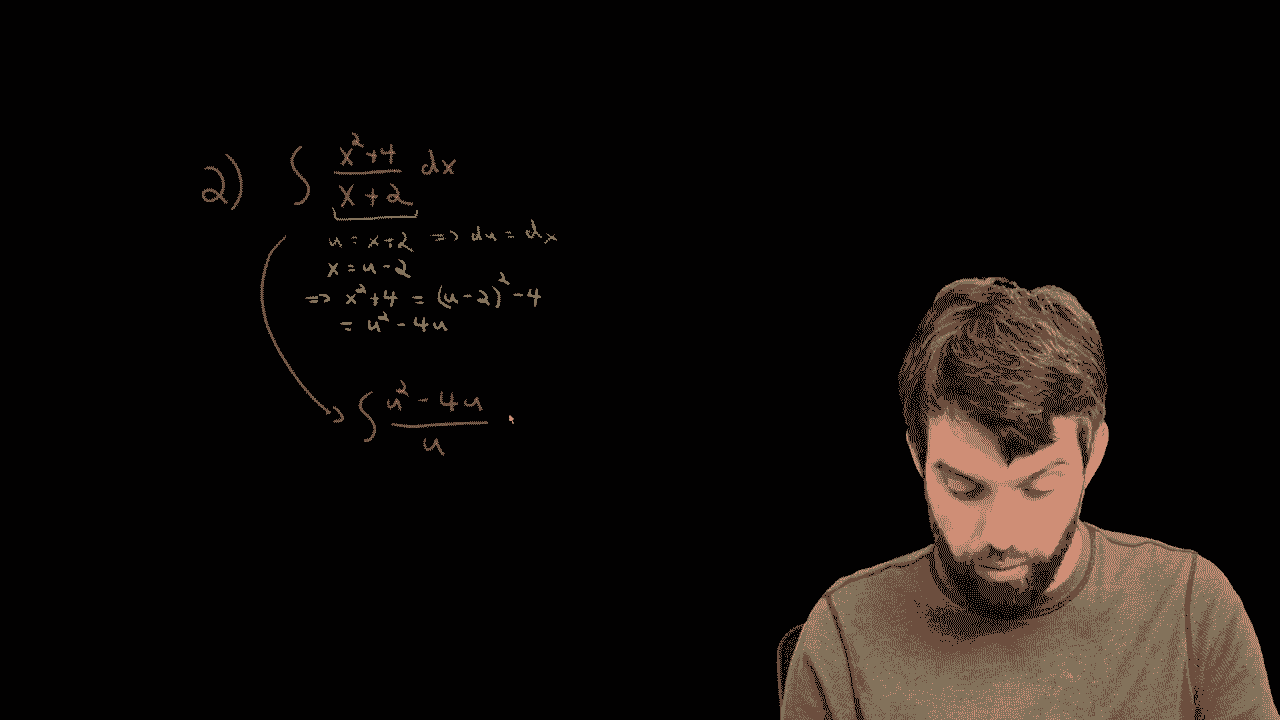 2) ∫ (x²+4)/(x+2) dx
u = x+2 => du = dx
x = u-2
=> x²+4 = (u-2)²-4
= u²-4u
∫ (u²-4u)/u